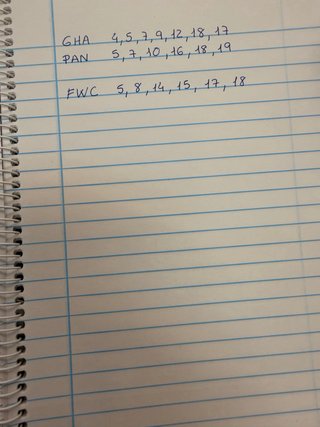 GHA 4,5,7,9,12,18,17
PAN 5,7,10,16,18,19
FWC 5,8,14,15,17,18